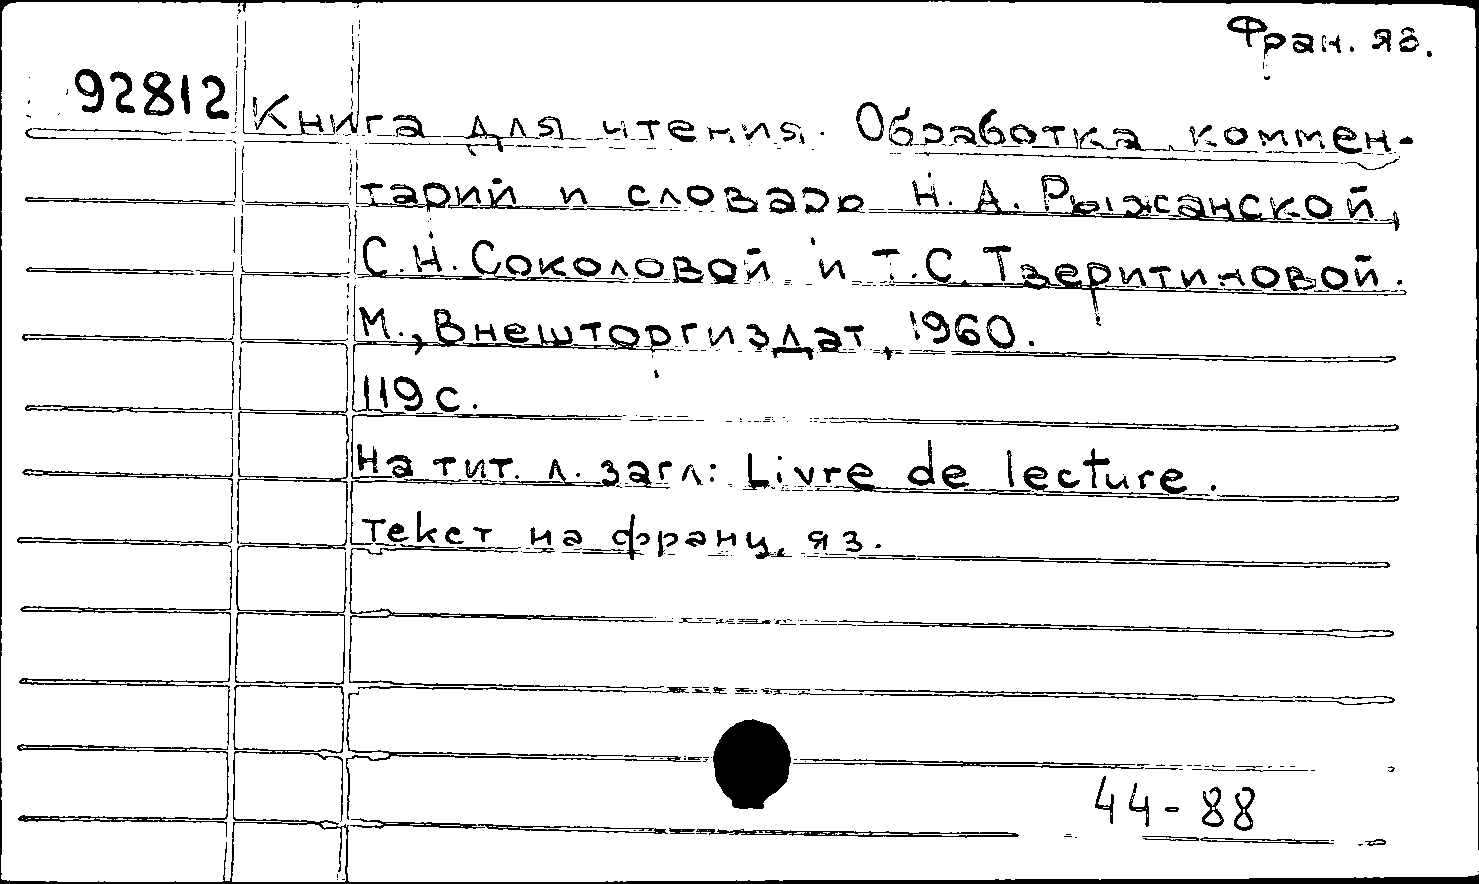 Фран. яз.
92812 Книга для чтения. Обработка, коммен-
тарий и словарь Н. А. Рыжанской,
С. Н. Соколовой и Т. С. Тзеритиновой.
М., Внешторгиздат, 1960.
119 с.
На тит. л. загл: Livre de lecture.
Текст на франц. яз.
44-88